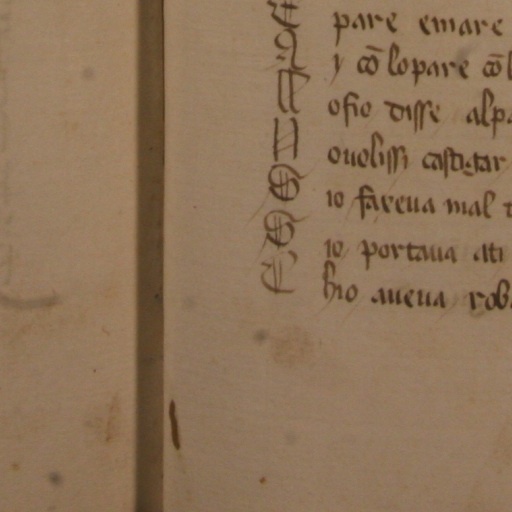 E pare emare
y cō lo pare cō l
A ofio disse alpa
D ouolissi castigar
S io fareua mal
S io portaua ati
C hio aueua roba